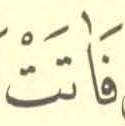 فَاٰتَتْ